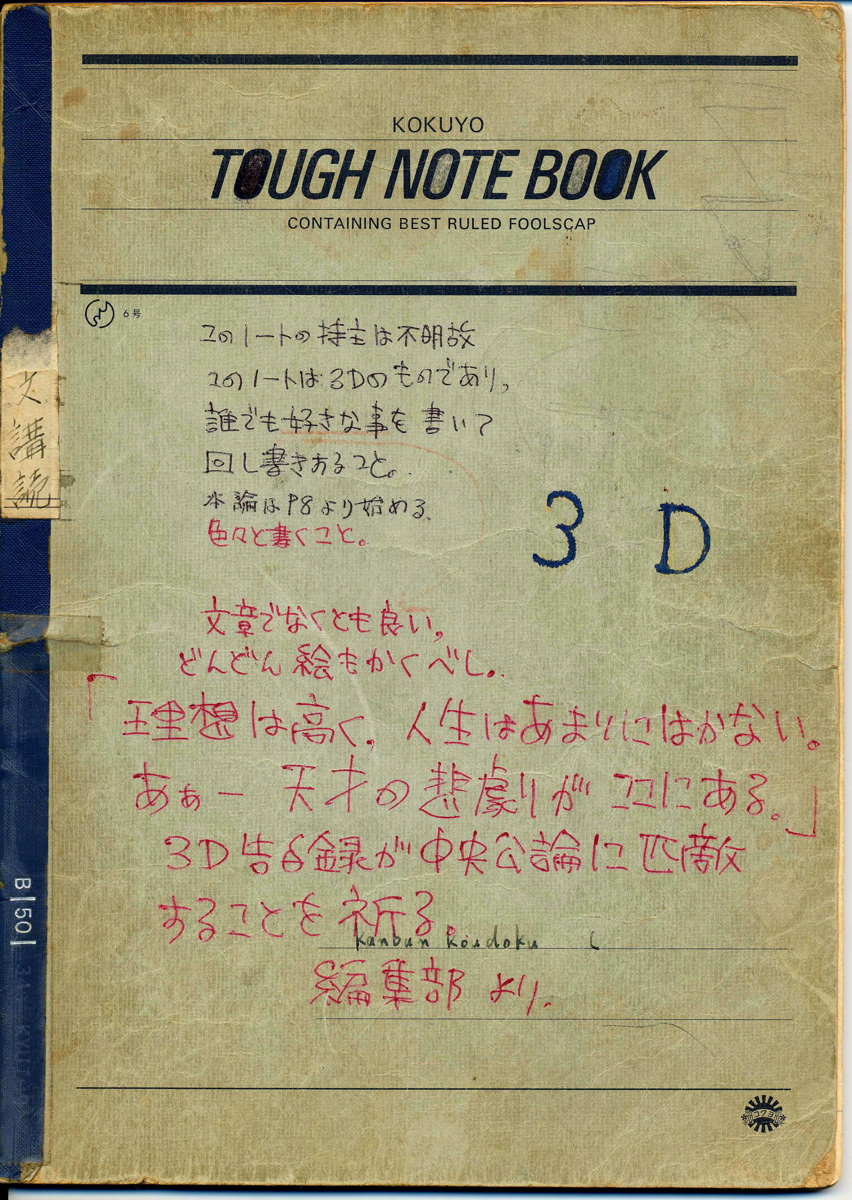 KOKUYO
TOUGH NOTE BOOK
CONTAINING BEST RULED FOOLSCAP
6号
このノートの持主は不明故
このノートは3Dのものであり、
誰でも好きな事を書いて
回し書きおること。
本論はP8より始める、
色々と書くこと。
3 D
文章でなくとも良い。
どんどん絵もかくべし。
「理想は高く、人生はあまりにはかない。
あぁー 天才の悲劇がココにある。」
3D告白録が中央公論に匹敵
することを祈る。
Kanbun Koudoku
編集部 より。
文講読
B150
コクヨ